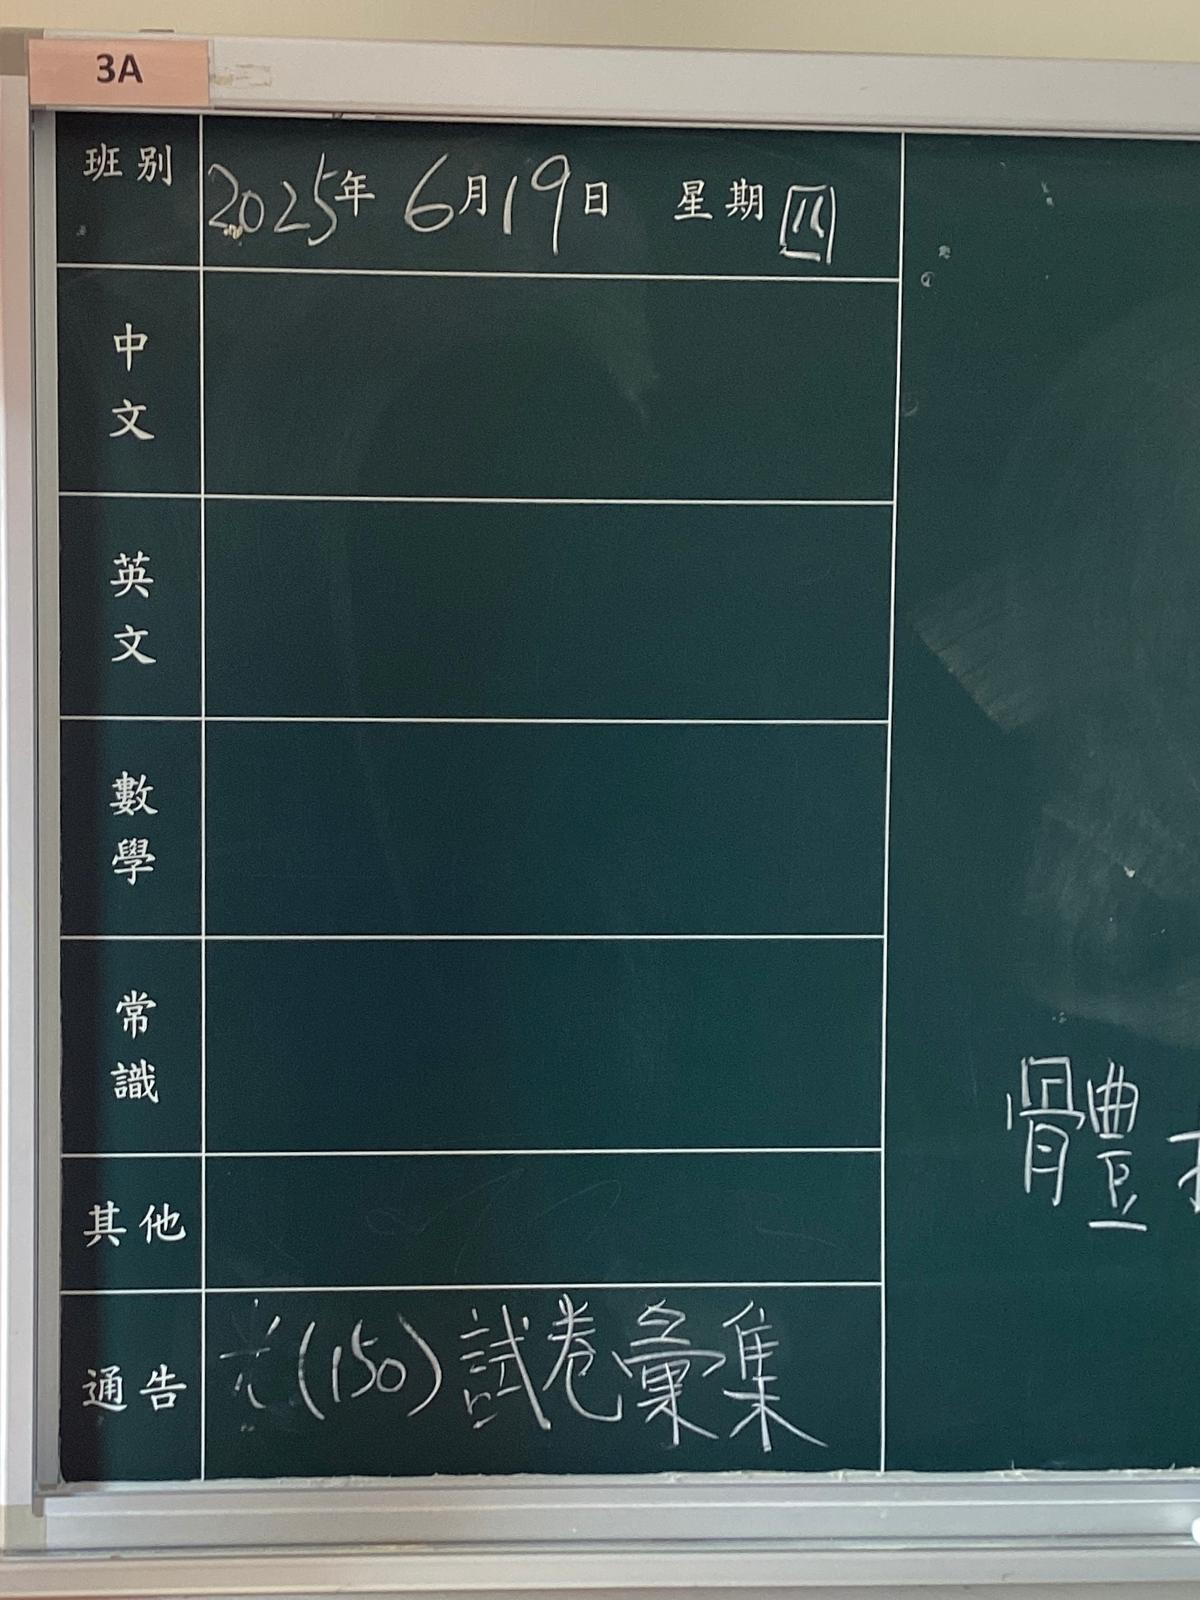 3A
班別 2025年 6月19日 星期四
中文
英文
數學
常識
其他
通告 光(150)試卷彙集
體